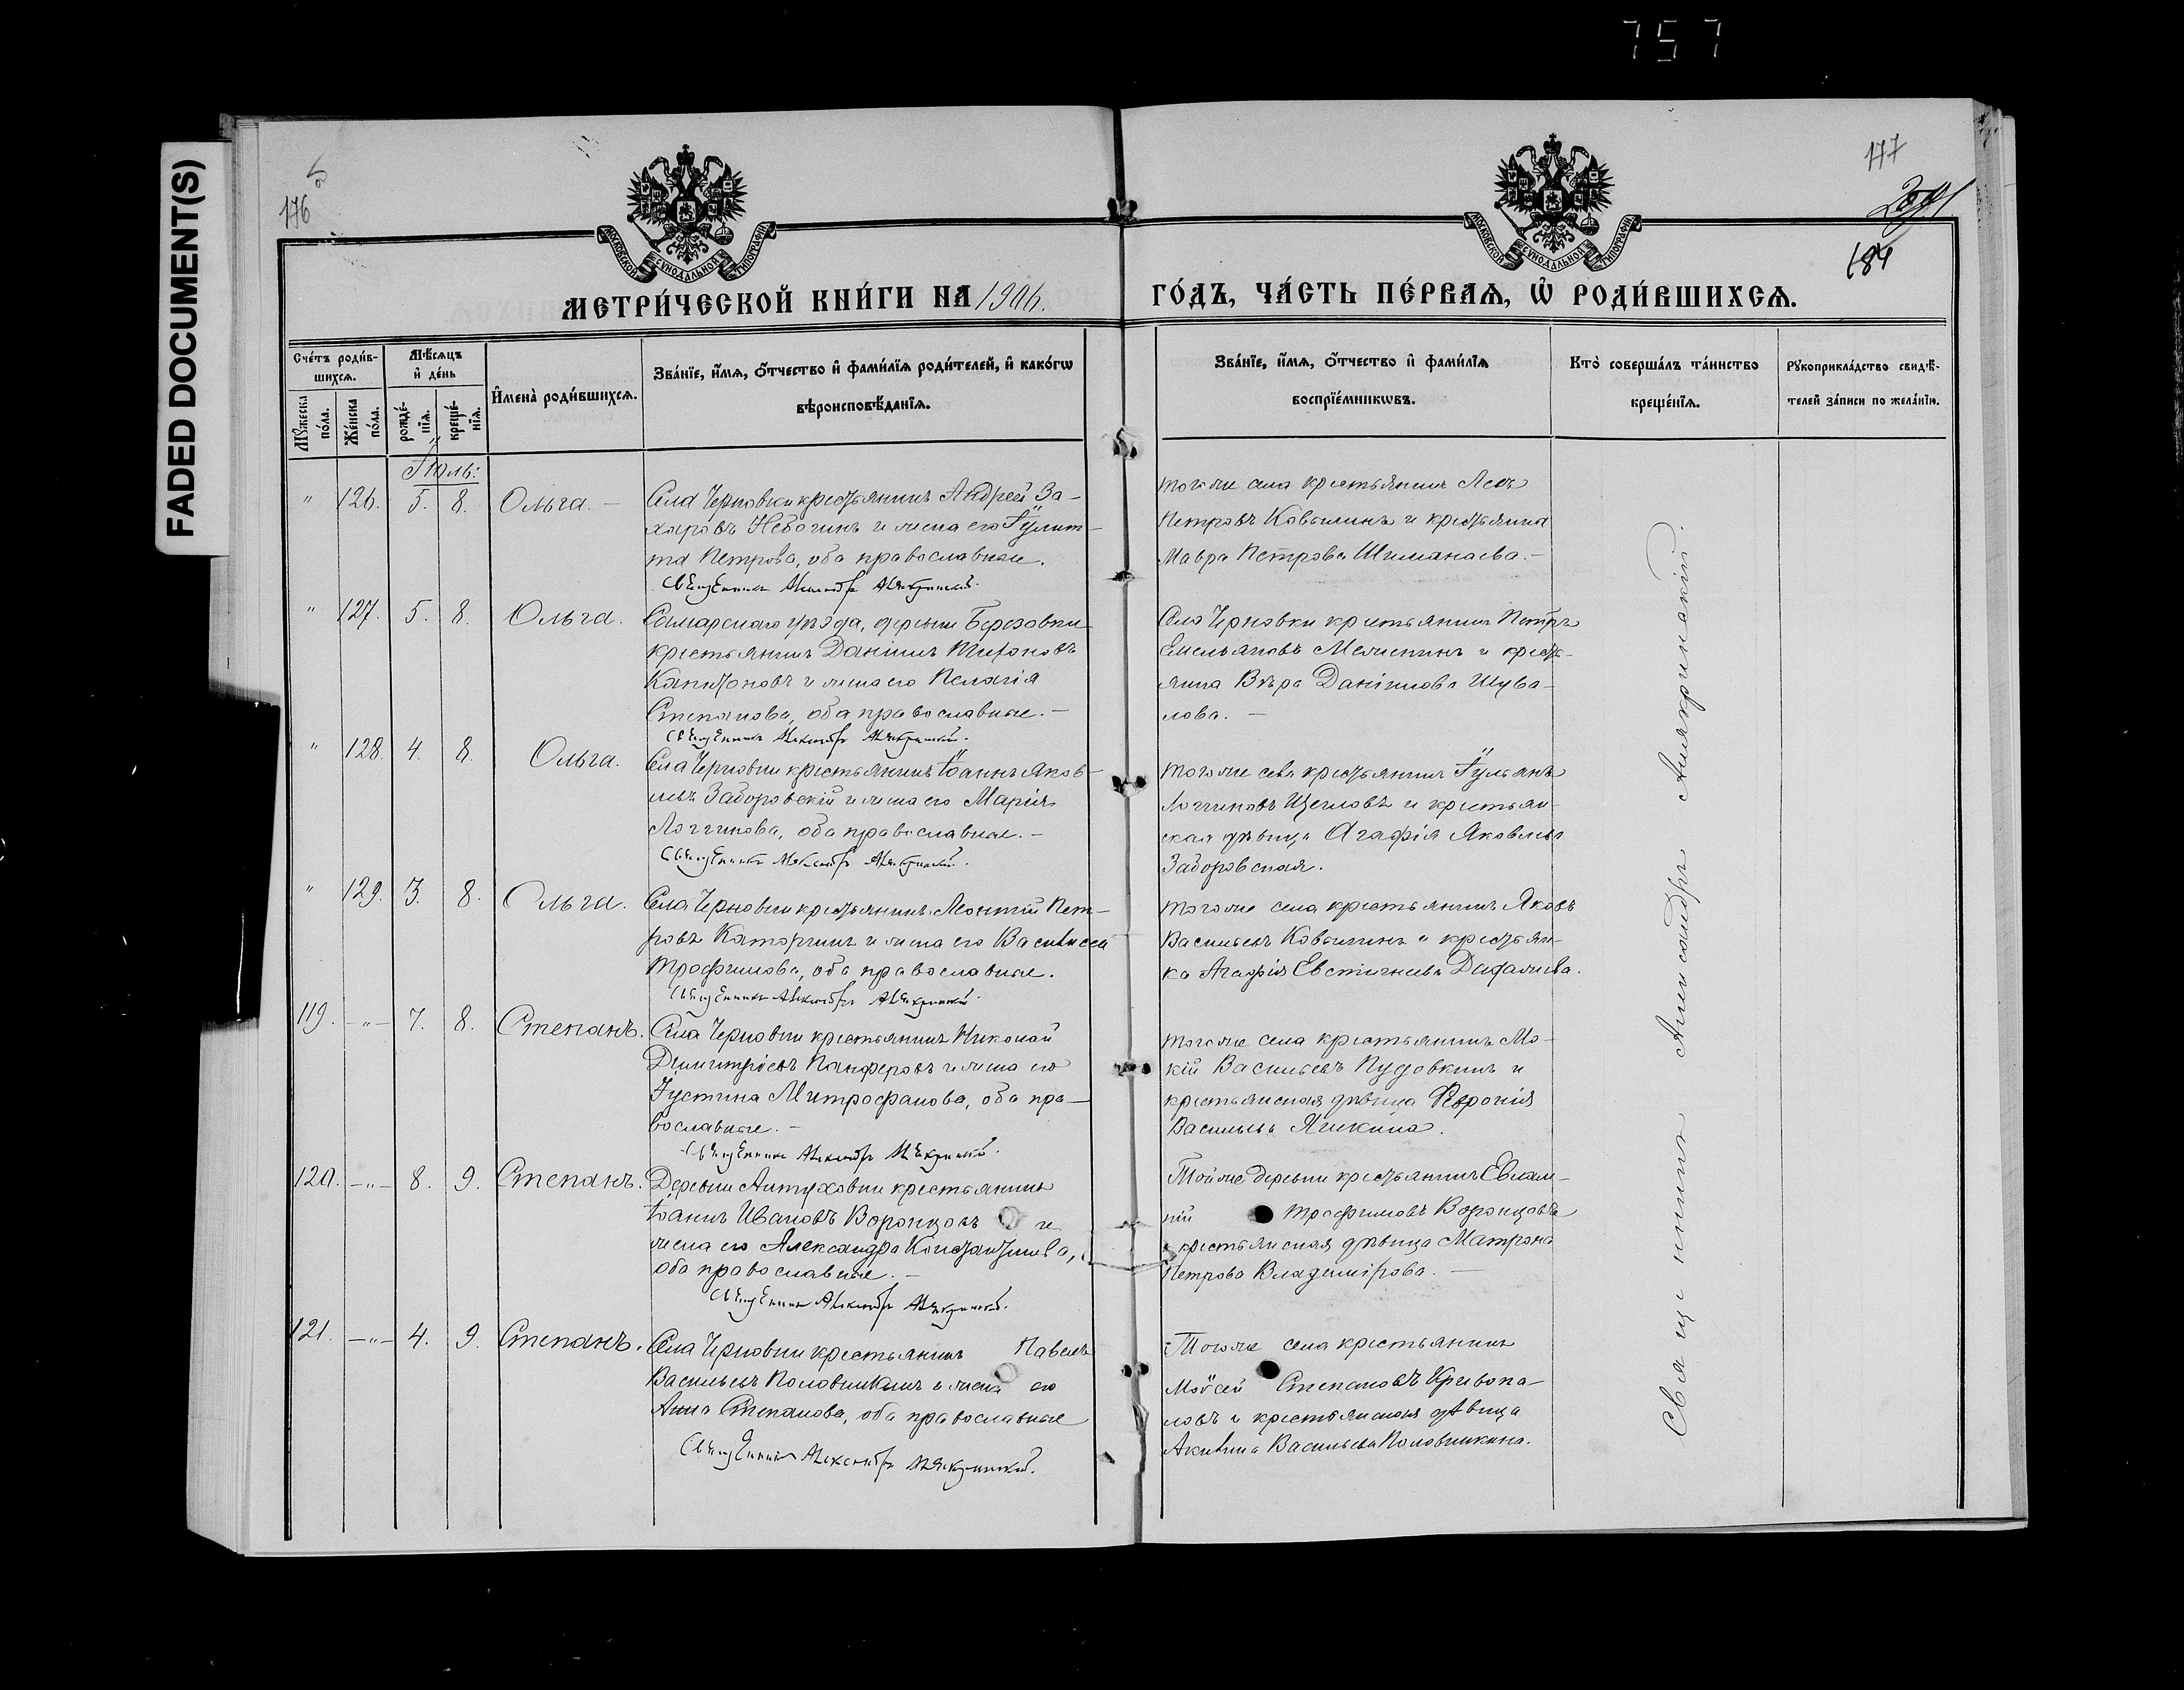 757
FADED DOCUMENT(S)
176
177
184
МОСКОВСКОЙ СУНОДАЛЬНОЙ ТИПОГРАФІИ
МОСКОВСКОЙ СУНОДАЛЬНОЙ ТИПОГРАФІИ
МЕТРИ́ЧЕСКОЙ КНИ́ГИ НА 1906.
ГО́ДЪ, ЧА́СТЬ ПЕ́РВАѦ, Ѽ РОДИ́ВШИХСѦ.
Сче́тъ роди́в-
шихсѧ.
Мѣ́сяцъ
и҆ де́нь
Мꙋ́жеска
по́ла.
Же́нска
по́ла.
рожде́-
нїѧ.
креще́-
нїѧ.
И҆мена̀ роди́вшихсѧ.
Зва́нїе, и҆́мѧ, ѻ҆́тчество и҆ фами́лїѧ роди́телей, и҆ како́гѡ
вѣроисповѣ́данїѧ.
Зва́нїе, и҆́мѧ, ѻ҆́тчество и҆ фами́лїѧ
воспрїе́мникѡвъ.
Кто̀ соверша́лъ та́инство
креще́нїѧ.
Рꙋкоприкла́дство свидѣ́-
телей за́писи по жела́нїю.
Іюль:
" 126. 5. 8. Ольга. –
Села Черновки крестьянинъ Андрей За-
харовъ Небогинъ и жена его Іулит-
та Петрова, оба православные.
Священникъ Александръ Аиякринскій.
тогоже села крестьянинъ Левъ
Петровъ Ковылинъ и крестьянка
Мавра Петрова Шиманаева. –
" 127. 5. 8. Ольга.
Самарскаго уѣзда, деревни Березовки
крестьянинъ Даніилъ Тихоновъ
Капитоновъ и жена его Пелагія
Степанова, оба православные. –
Священникъ Александръ Аиякринскій.
Села Черновки крестьянинъ Петръ
Емельяновъ Мелженинъ и кресть-
янка Вѣра Даніилова Шува-
лова. –
" 128. 4. 8. Ольга.
Села Черновки крестьянинъ Іоаннъ Яков-
левъ Заборовскій и жена его Марія
Логгинова, оба православные. –
Священникъ Александръ Аиякринскій.
тогоже села крестьянинъ Іульянъ
Логгиновъ Щегловъ и крестьян-
ская дѣвица Агафія Яковлева
Заборовская.
" 129. 3. 8. Ольга.
Села Черновки крестьянинъ Леонтій Пет-
ровъ Каторгинъ и жена его Василисса
Трофимова, оба православные.
Священникъ Александръ Аиякринскій.
тогоже села крестьянинъ Яковъ
Васильевъ Ковылинъ и крестьян-
ка Агафія Евстигнеева
119. –"– 7. 8. Степанъ.
Села Черновки крестьянинъ Николай
Димитріевъ Панферовъ и жена его
Іустина Митрофанова, оба пра-
вославные. –
Священникъ Александръ Аиякринскій.
тогоже села крестьянинъ Мо-
кій Васильевъ Пудовкинъ и
крестьянская дѣвица Февронія
Васильева Ячкина.
120. –"– 8. 9. Степанъ.
Деревни Антуховки крестьянинъ
Іоаннъ Ивановъ Воронцовъ и
жена его Александра Константинова,
оба православные. –
Священникъ Александръ Аиякринскій.
Тойже деревни крестьянинъ Евлам-
пій Трофимовъ Воронцовъ
и крестьянская дѣвица Матрона
Петрова Владимірова. –
121. –"– 4. 9. Степанъ.
Села Черновки крестьянинъ Павелъ
Васильевъ Половинкинъ и жена его
Анна Степанова, оба православные
Священникъ Александръ Аиякринскій.
Тогоже села крестьянинъ
Моѵсей Степановъ Кривопа-
ловъ и крестьянская дѣвица
Акилина Васильева Половинкина.
Священникъ Александръ Аиякринскій.